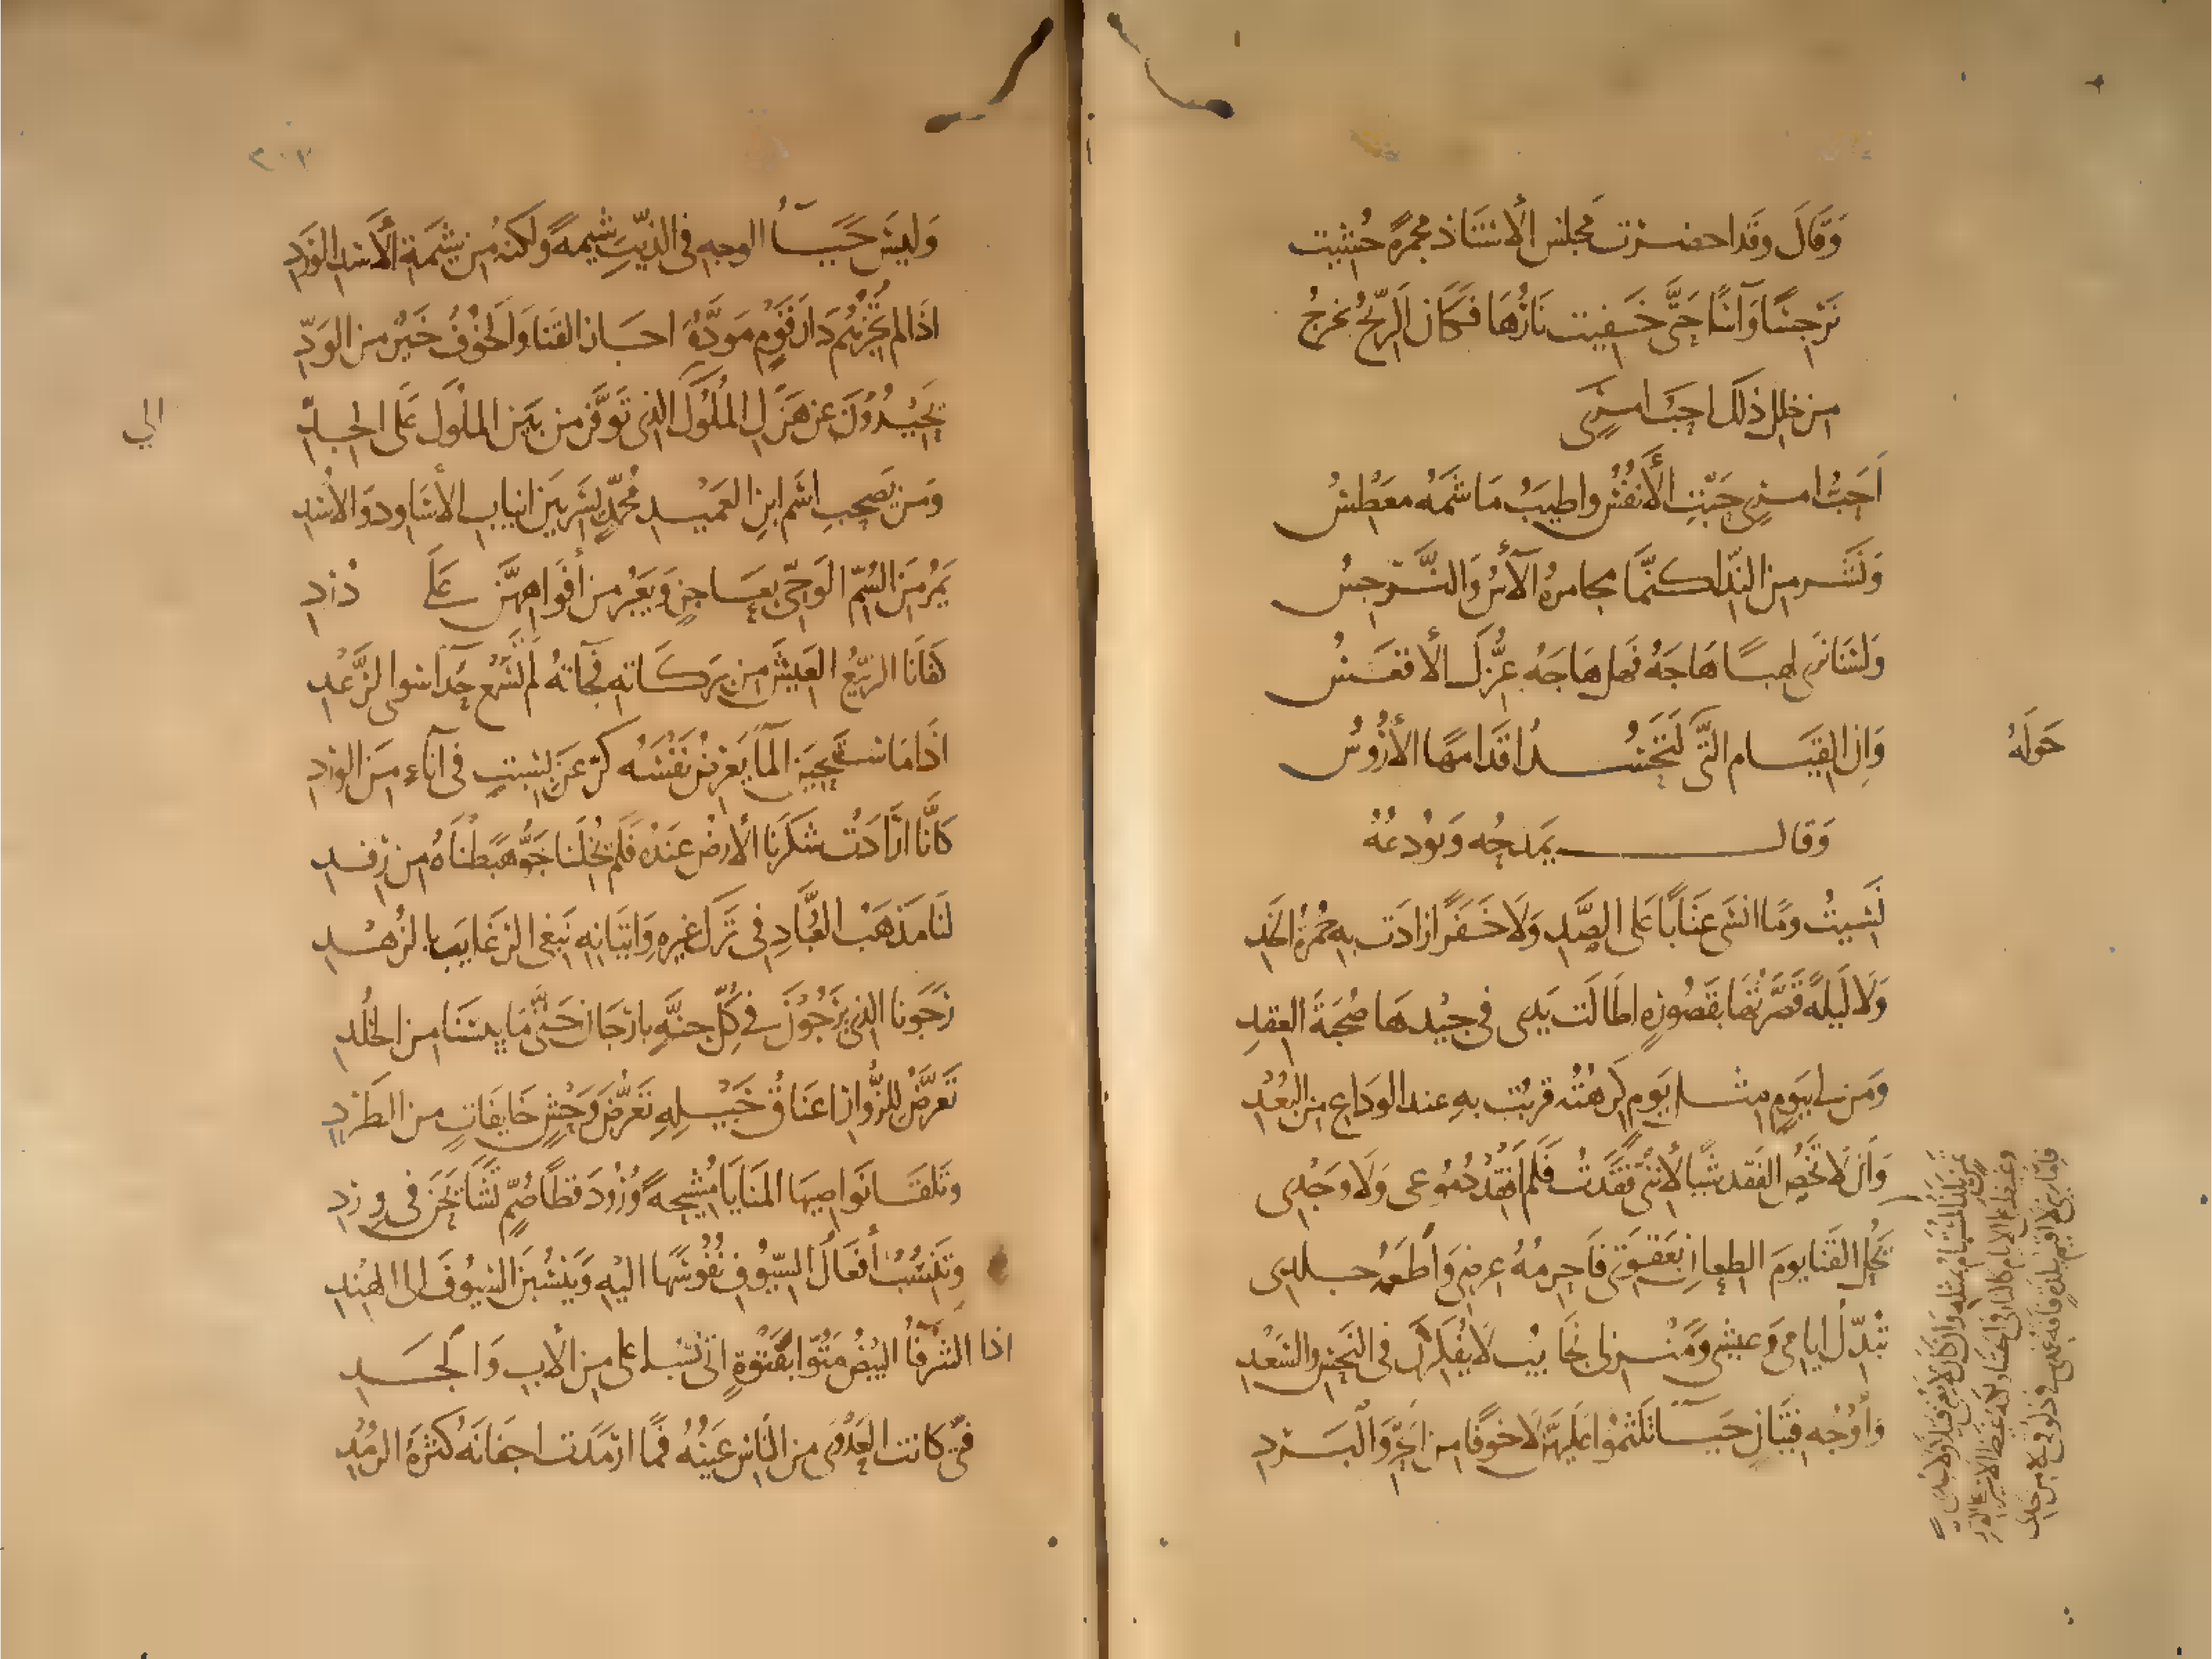 وَقَالَ وقَد احضرت مجلس الأستاذ مجمرة حُشيت
نَرجسًا وَآسًا حَتَّى خَفيت نَارُهَا فكان الرّيح تخرج
من خلل ذلك احبّ امرئٍ
اَحَبُّ امرئٍ حَبَّتِ الأَنفُسُ واطيَبُ مَا شَمَّهُ مَعطِسُ
وَنَشر من النّدّ لكنّما مجامرهُ الآسُ وَالنّرجسُ
وَلَسْنَا نَرى لهبًا هَاجَهُ فَهل هَاجَهُ عِزُّك الأقعَسُ
وَاِن القِيَام التّى حَولَهُ لَتَحْسُد اقدَامهَا الأرؤُسُ
وَقال يَمدحُه وَيُودعُهُ
نَسيتُ ومَا انسَى عتَابًا عَلى الصَّدِ وَلَا خَفَرًا زادَت بهِ حُمرةُ الخَدِ
وَلَا لَيلةً قَصَّرتُهَا بقَصُورةٍ اطَالَت يَدى في جيْدهَا صُحبَةَ العقدِ
وَمَن لى بيَومٍ مثل يَومٍ كَرِهتُهُ قربْت بهِ عند الوَدَاع من البُعْدِ
وَاَن لَا يَخُصّ الفَقد شَيْئًا لِأنّنى فَقَدْتُ فَلَم اَفقِدْ دُمُوعى وَلَا وَجْدِى
يُكلّ القَنا يومَ الطعانِ بعَقوتى فَاحرمُهُ عِرضى وَاطعمُه جلدى
تُبَدِّلُ ايامى وَعيشى وَمنزلى نجَايُب لَا يُفكّرن في النَحس والسَعْدِ
وَأوْجُه فِتيَانٍ حَيَآءً تلثمُوا عَلَيهنّ لَا خَوفًا من الحَرِّ وَالبَردِ
وَليسَ حَيَآءُ الوجهِ في الذيّبِ شيمةً ولكنهُ من شيْمَةِ الأسَد الوَردِ
اذَا لم تُجِزْهُم دَارَ قَوْمٍ مَودّةٌ اجَازَ القَنا وَالخَوْفُ خَيْرٌ من الوَدِّ
يَحِيْدُوْنَ عن هَزْل المُلُوْكِ الى الذى تَوَفَّر من بَين المُلُوْك عَلى الجدّ
ومَن يَصحب اسْم ابنِ العَميْدِ مُحمّدٍ يَسِر بَين انياب الأسَاود وَالأسْدِ
يَمُرّ مِنَ السُمّ الوَحِىّ بعَاجزٍ وَيَعبُر من أفوَاههِنَّ عَلَى دُردِ
كفَانَا الرّبيْعُ العِيسَ من بَرَكَاتهِ فَجَآتهُ لَم تَسْمَع حُدَآءً سوى الرَّعْدِ
اذَا مَا استَحَيْنَ المآءَ يَعرضُ نفْسَهُ كرَعنَ بسِبتٍ في اَنآءٍ مِنَ الوَردِ
كَأنّا ارَادَت شكرَنا الأرضُ عندَهُ فَلَم يُخْلِنا جَوٌّ هَبَطْنَاهُ من رِفدِ
لَنا مَذهَبُ العُبَّادِ في تَركِ غيرهِ وَاتيَانهِ نَبغى الرَغايبَ بالزُهْدِ
رَجَوْنا الذى يَرْجُوْنَ فى كُلّ جنّةٍ بارّجَانَ حَتّى مَا يئسْنا من الخُلْدِ
تعَرَّضُ للزُّوّار اعنَاقُ خَيْلهِ تَعَرُّضَ وَحشٍ خَايفَاتٍ من الطَرْدِ
وتَلقَى نَواصيهَا المَنَايَا مُشِيحةً وُرُودَ قطًا صُمٍّ تشَايحنَ في وِردِ
وتَنسُبُ أفعَالُ السّيُوفِ نُفُوسَهَا اليْهِ وَيَنسُبنَ السُيوْفَ الى الهِنْدِ
اذا الشرفآءُ البِيْضُ مَتّوا بقَتْوِهِ اتى نَسَبٌ اعلى من الأب وَالجَدِ
فتًى كانت العَدْوَى من النّاس عَينُهُ فمَا ارمَدت اجفَانَهُ كثرَةُ الرُمْدِ
الى